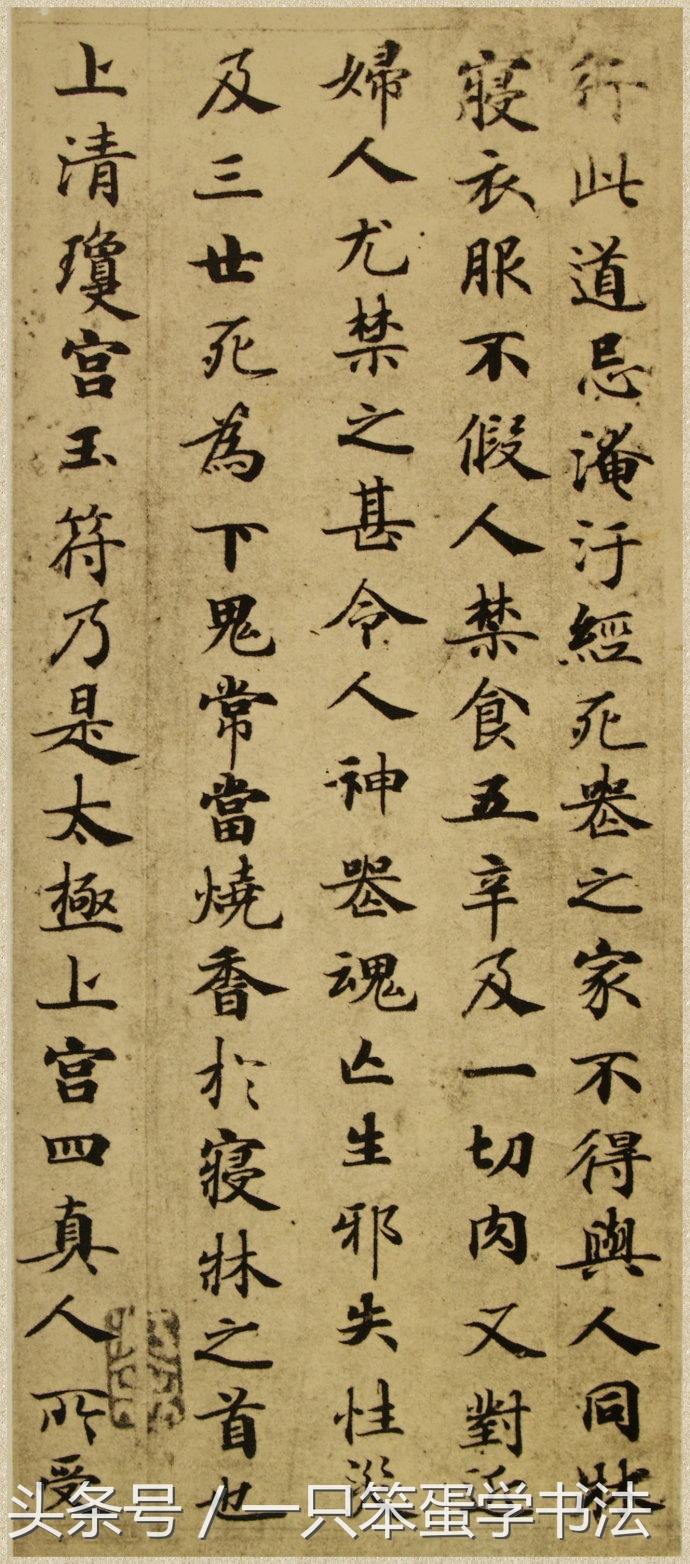 行此道忌淹汙經死器之家不得與人同牀
寢衣服不假人禁食五辛及一切肉又對近
婦人尤禁之甚令人神器魂亡生邪失性災
及三世死為下鬼常當燒香於寢牀之首也
上清瓊宮玉符乃是太極上宮四真人所受
头条号 / 一只笨蛋学书法